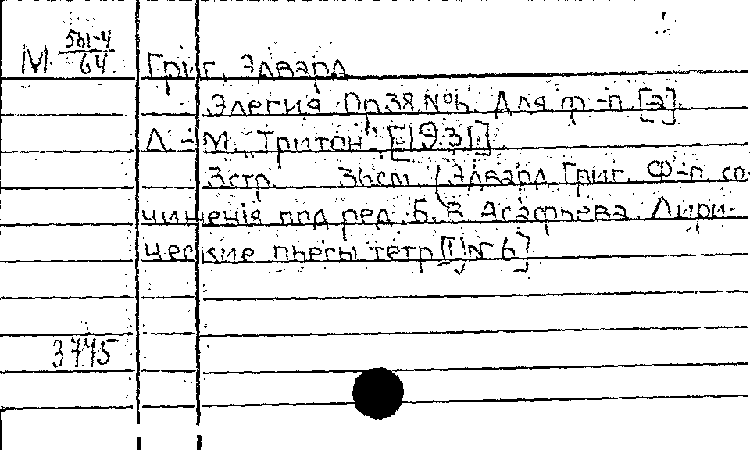 М 561-4/64
Григ, Эдвард
Элегия Ор. 38 № 6. Для ф-п. [а]
Л - М. "Тритон" [1931].
3 стр. 36 см. (Эдвард Григ. Ф-п. со-
чинения под ред. Б. В. Асафьева. Лири-
ческие пьесы тетр [II] № 6]
3775